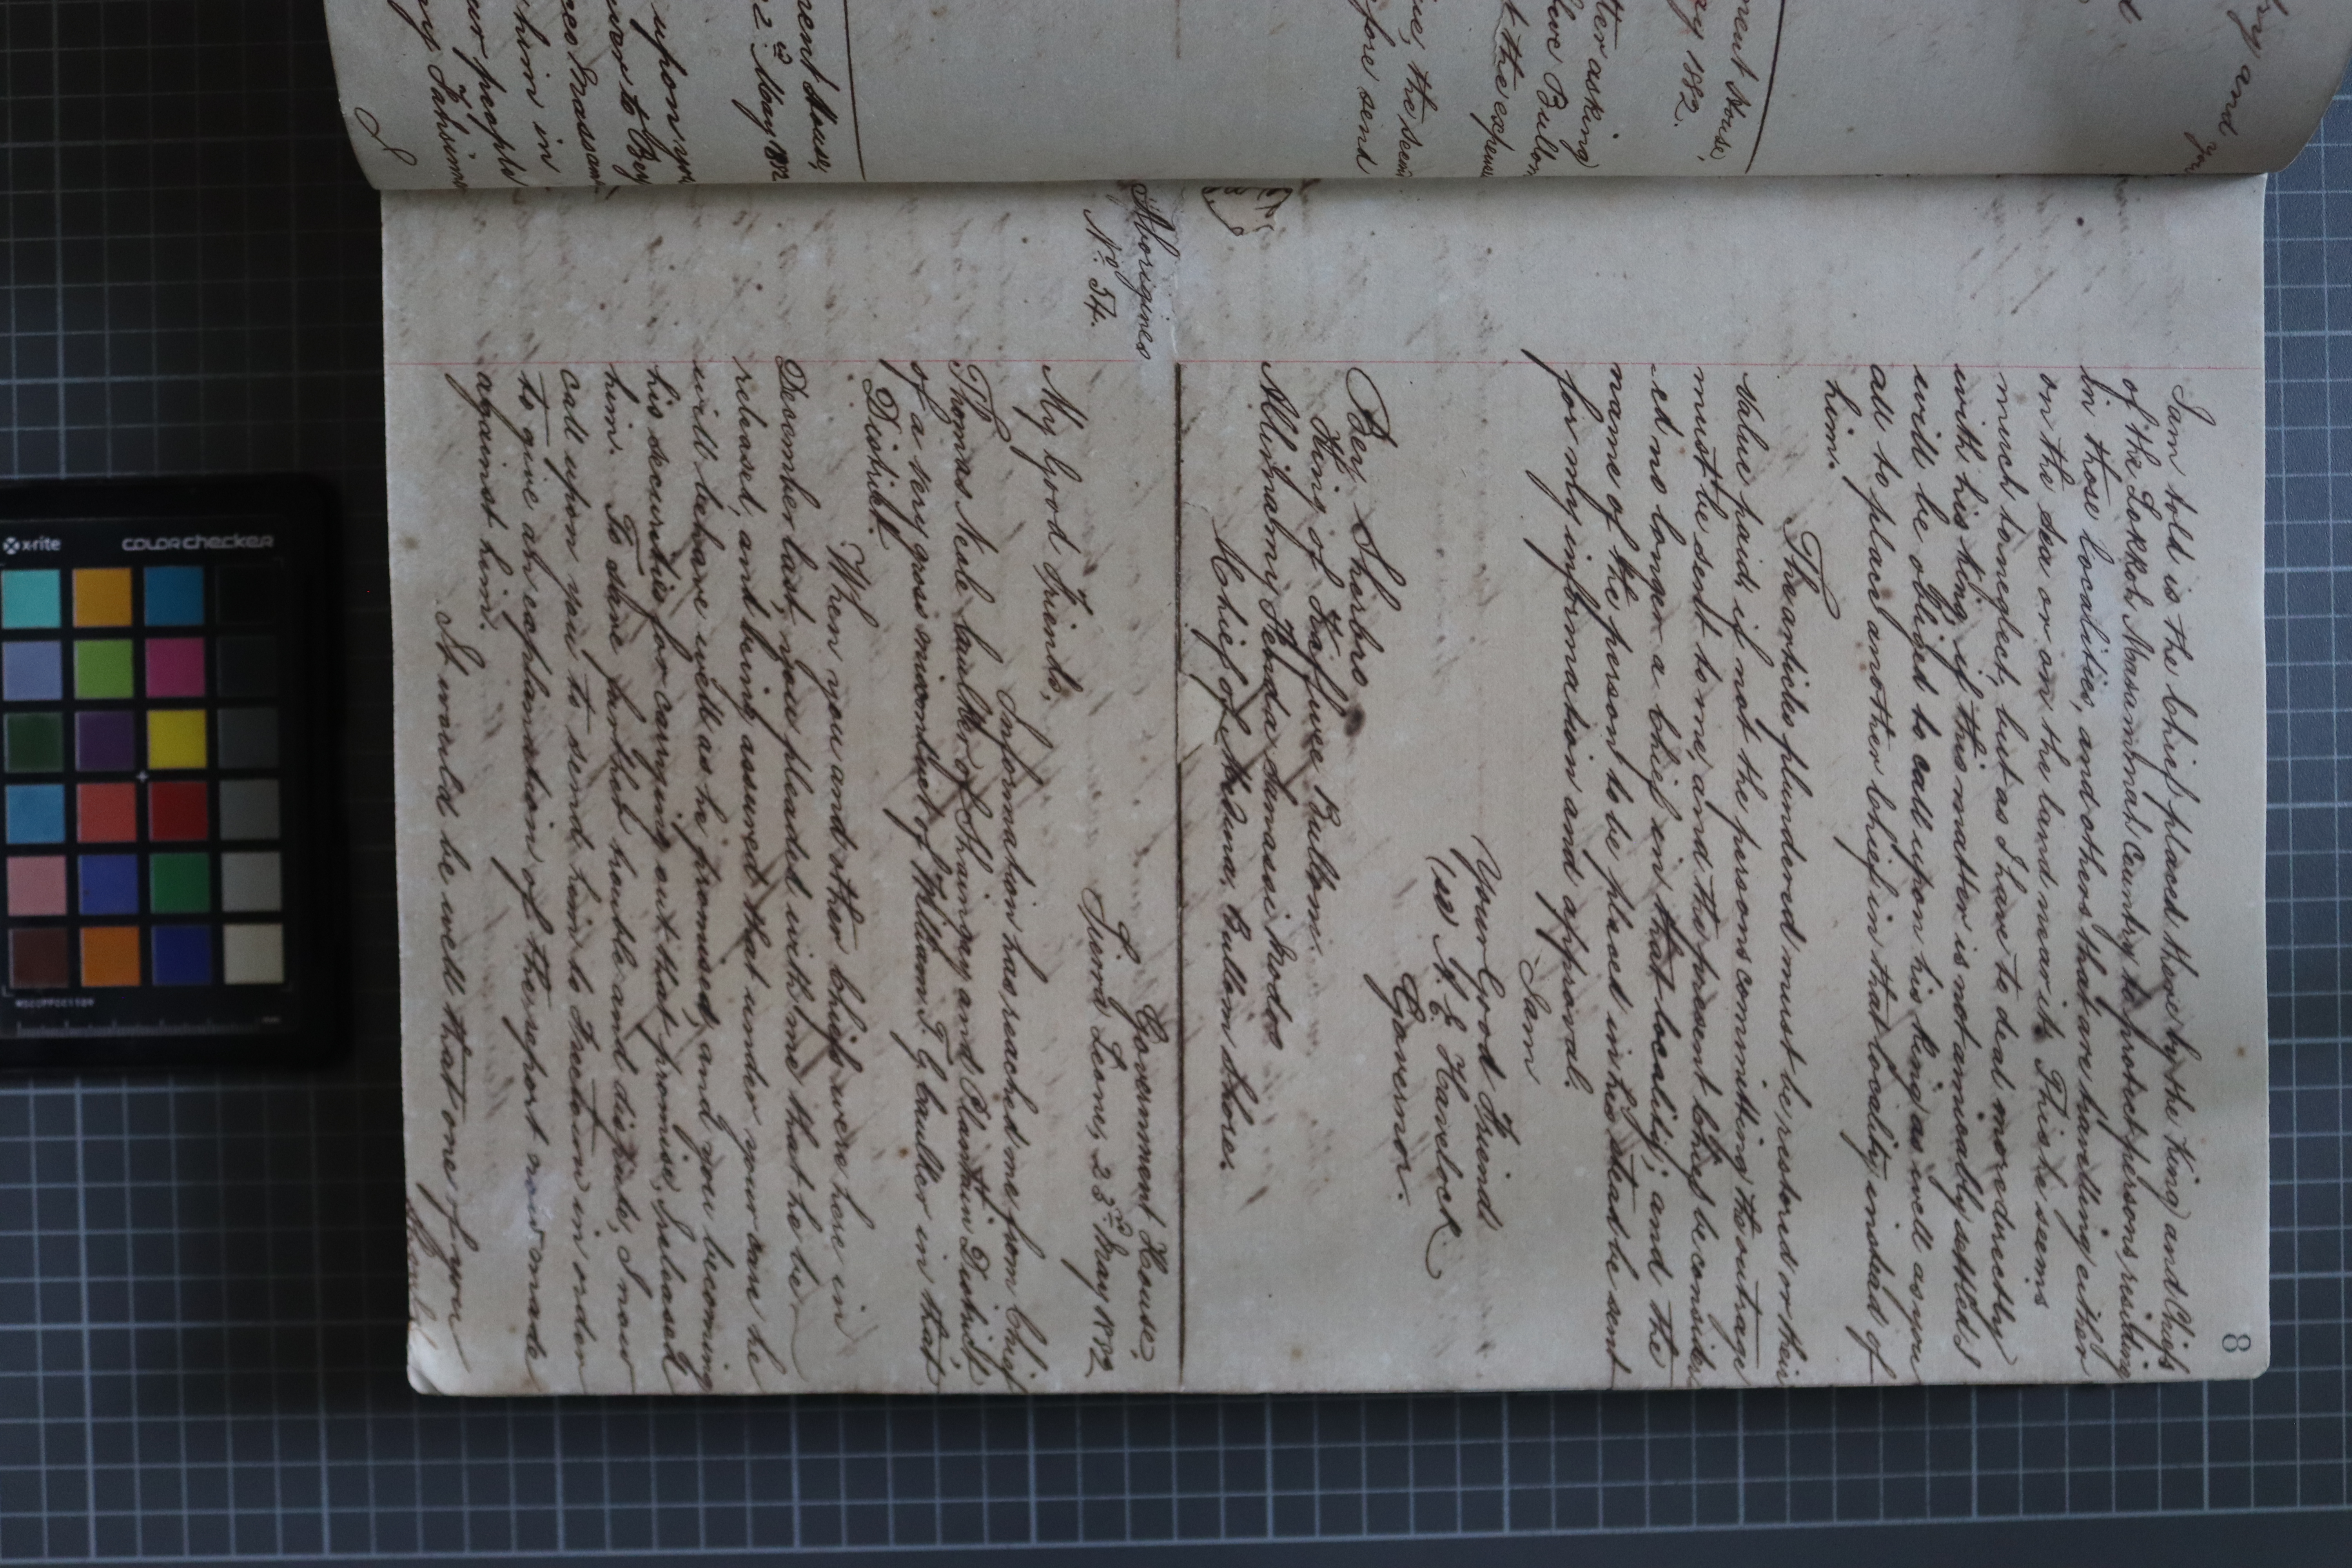 8
I am told is the Chief placed there by the King and Chiefs
of the Lokkoh Masammah Country to protect persons residing
in those localities, and others that are travelling either
on the sea or on the land near it. This he seems
much to neglect, but as I have to deal more directly
with his King, if this matter is not amicably settled I
will be obliged to call upon his King as well as you
all to place another Chief in that locality instead of
him.
The articles plundered must be restored or their
value paid, if not the persons committing the outrage
must be sent to me, and the present Chief be consider
ed no longer a Chief in that locality; and the
name of the person to be placed in his stead be sent
for my information and approval.
I am
Your Good Friend
(sd) A. E. Havelock
Governor.
Bey Sherbro
King of Kafuwe Bullom.
Alimamy Sandu
Chief of Medina, Bullom Shore.
Aborigines
No. 54.
Government House,
Sierra Leone, 23rd May 1882
My Good Friends,
Information has reached me from Chief
Thomas Neale Caulker of Shaingay and Plantain District,
of a very gross misconduct of William T. G. Caulker in that
District.
When you and other Chiefs were here in
December last, you pleaded with me that he be
released, and being assured that under your care he
will behave well as he promised, and you becoming
his securities for carrying out that promise, I released
him. To save further trouble and dispute, I now
call upon you to send him to Freetown in order
to give an explanation of the report now made
against him.
It would be well that one of you
ment House,
ay 1882.
tter asking
Bullom
t the expense
the
fore send
ment House,
22nd May 1882
upon you
to Bey
him in
our people
by
I
x-rite
colorchecker